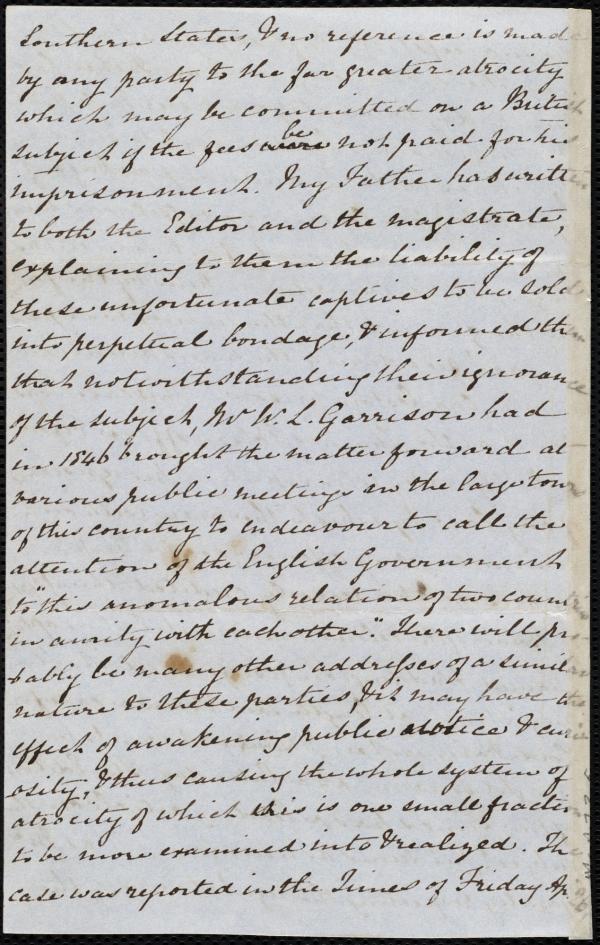 Southern States, & no reference is made
by any party to the far greater atrocity
which may be committed on a British
subject if the fees be not paid for his
imprisonment. My Father has written
to both the Editor and the magistrate,
explaining to them the liability of
these unfortunate captives to be sold
into perpetual bondage, & informed them
that notwithstanding their ignorance
of the subject, Mr W. L. Garrison had
in 1846 brought the matter forward at
various public meetings in the large towns
of this country to endeavour to call the
attention of the English Government
to "this anomalous relation of two countries
in amity with each other." There will pro-
bably be many other addresses of a similar
nature to these parties, & it may have the
effect of awakening public notice & curi-
osity, & thus causing the whole system of
atrocity of which this is one small fraction
to be more examined into & realized. The
case was reported in the Times of Friday Ap.